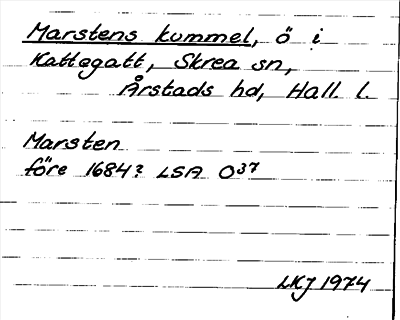 Marstens kummel, ö i
Kattegatt, Skrea sn,
Årstads hd, Hall. l.
Marsten
före 1684? LSA O37
LKJ 1974